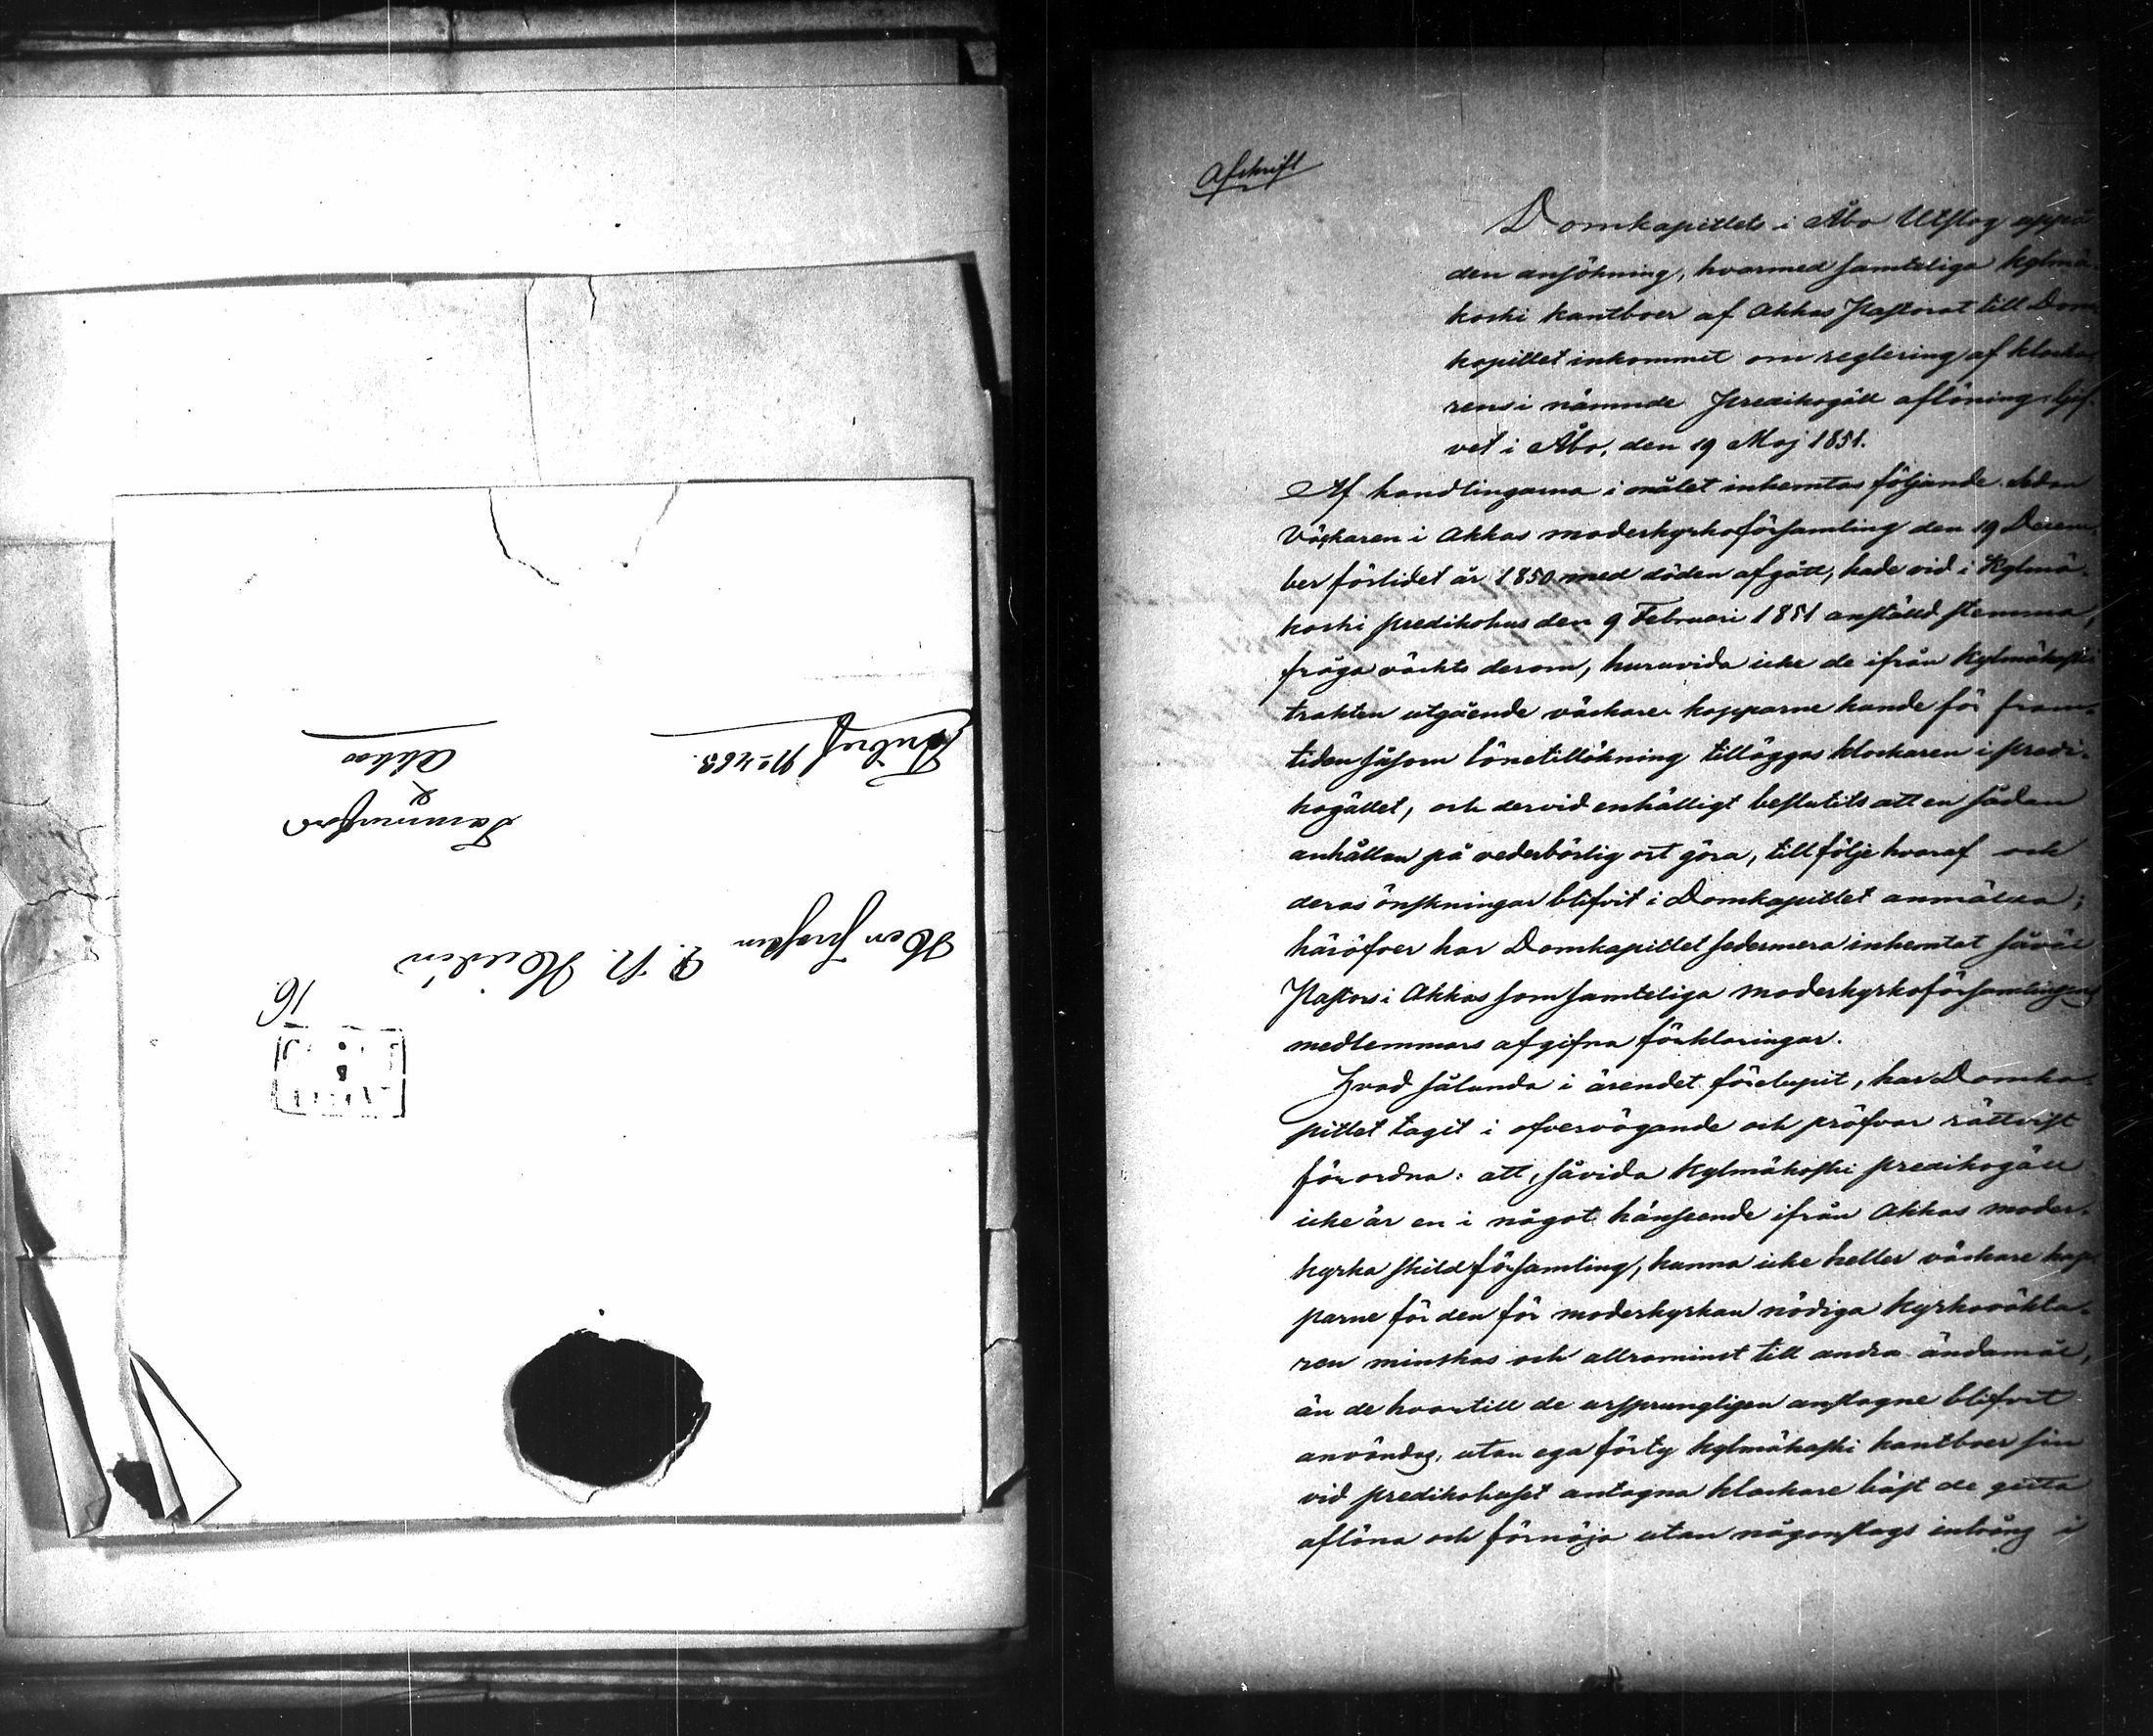 Fribref No 463.
Akkas
&
Tammerfors
Herr Prosten F. N. Heurlin
16.
Afskrift
Domkapitlets i Åbo Utslag uppå
den ansökning, hvarmed samtelige Kylmä-
koski kantboer af Akkas Pastorat till Dom-
kapitlet inkommit om reglering af klocka-
rens i nämnde Predikogäll aflöning; Gif-
vet i Åbo, den 19 Maj 1851.
Af handlingarna i målet inhemtas följande. Sedan
Väckaren i Akkas moderkyrkoförsamling den 19 Decem-
ber förlidet år 1850 med döden afgått, hade vid i Kylmä-
koski predikohus den 9 Februari 1851 anstäld stemma,
fråga väckts derom, huruvida icke de ifrån Kylmäkoski
trakten utgående väckare kapparne kunde för fram-
tiden såsom lönetillökning tilläggas klockaren i predi-
kogället, och dervid enhälligt beslutits att en sådan
anhållan på vederbörlig ort göra, till följe hvaraf och
deras önskningar blifvit i Domkapitlet anmälda;
häröfver har Domkapitlet sedermera inhemtat såväl
Pastors i Akkas som samteliga moderkyrkoförsamlingens
medlemmars afgifna förklaringar.
Hvad sålunda i ärendet förelupit, har Domka-
pitlet tagit i öfvervägande och pröfvar rättvist
förordna: att, såvida Kylmäkoski predikogäll
icke är en i något hänseende ifrån Akkas moder-
kyrka skild församling, kunna icke heller väckare kap-
parne för den för moderkyrkan nödiga kyrkovakta-
ren minskas och allraminst till andra ändamål,
än de hvartill de ursprungligen anslagne blifvit
användas, utan ega förty Kylmäkoski kantboer sin
vid predikohuset antagna klockare bäst de gitta
aflöna och förnöja utan någonslags intrång i